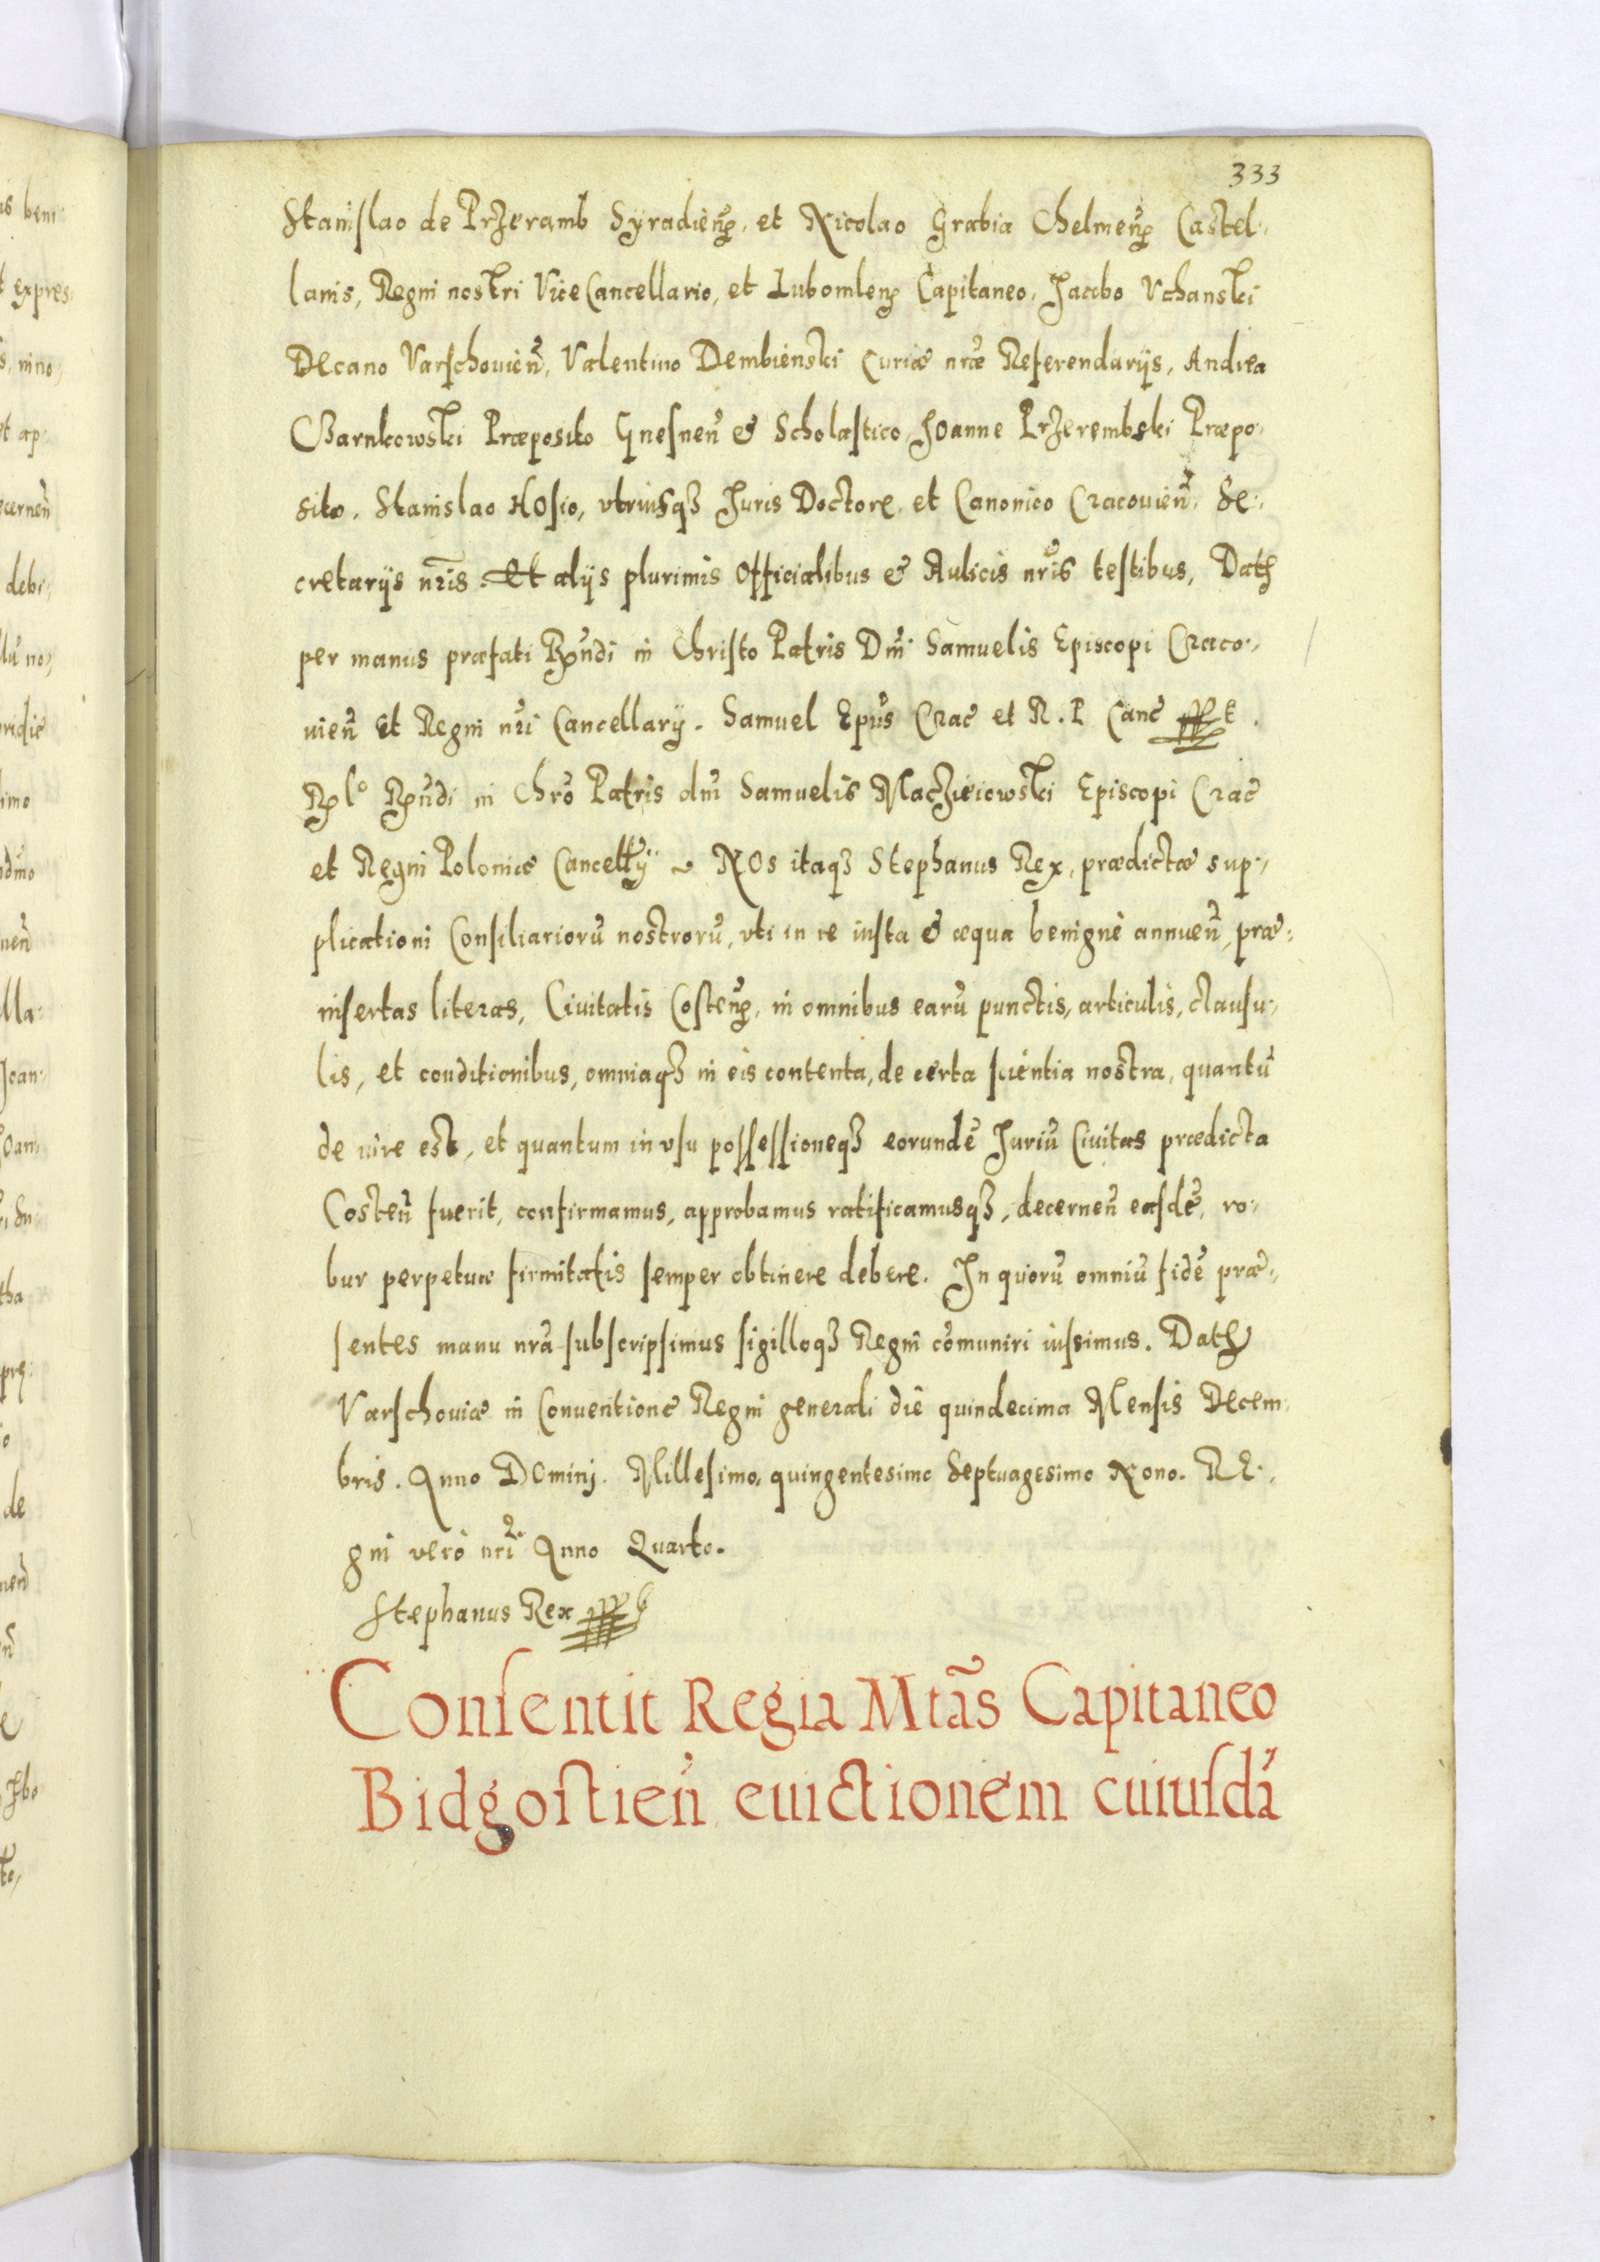 333
Stanislao de Przeramb Syradien̄, et Nicolao Grabia Chelmen̄ Castel-
lanis, Regni nostri ViceCancellario, et Lubomlen̄ Capitaneo, Jacobo Vchanski
Decano Varschouien̄, Valentino Dembienski Curiæ nr̄æ Referendarijs, Andrea
Czarnkowski Præposito Gnesnen̄ & Scholastico, Joanne Przerembski Præpo-
sito, Stanislao Hosio, vtriusqꝫ Juris Doctore, et Canonico Cracouien̄, Se-
cretarijs nr̄is. Et alijs plurimis Officialibus & Aulicis nr̄is testibus, Dat
per manus præfati Rn̄di in Christo Patris Dn̄i Samuelis Episcopi Craco-
uien̄ et Regni nr̄i Cancellarij. Samuel Epūs Crac̄ et R. P Canc̄ sst.
Rlo Rn̄di in Chr̄o Patris dn̄i Samuelis Macziejowski Episcopi Crac̄
et Regni Poloniæ Cancellrij ~ NOs itaqꝫ Stephanus Rex, prædictæ sup-
plicationi Consiliariorū nostrorū, vti in re iusta & æqua benignè annuen̄, præ-
insertas literas, Ciuitatis Costen̄, in omnibus earū punctis, articulis, clausu-
lis, et conditionibus, omniaqꝫ in eis contenta, de certa scientia nostra, quantū
de iure est, et quantum in vsu possessioneqꝫ eorundē Juriū Ciuitas prædicta
Costen̄ fuerit, confirmamus, approbamus ratificamusqꝫ, decernen̄ easdē, ro-
bur perpetuæ firmitatis semper obtinere debere. In quorū omniū fidē præ-
sentes manu nr̄a subscripsimus sigilloqꝫ Regni cōmuniri iussimus. Dat
Varschouiæ in Conuentione Regni generali die quindecima Mensis Decem-
bris. Anno Dominj. Millesimo, quingentesimo Septuagesimo Nono. RE-
gni verò nr̄i Anno Quarto.
Stephanus Rex sst
Consentit Regia Mtās Capitaneo
Bidgostien̄ euictionem cuiusdā